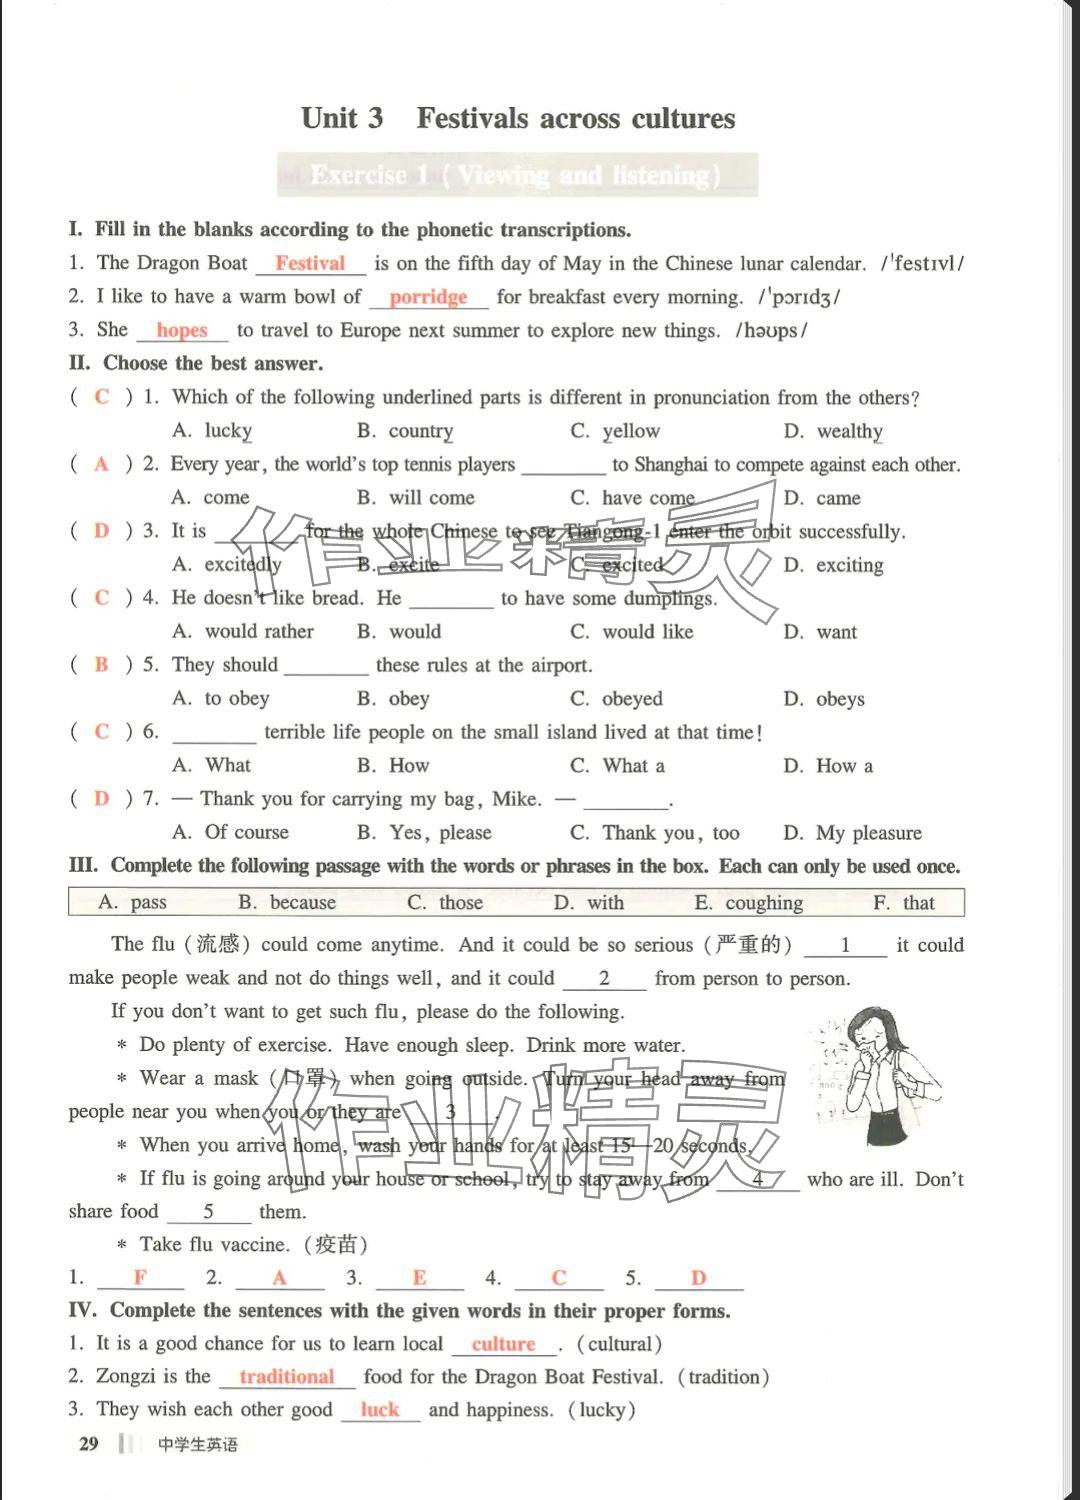 Unit 3 Festivals across cultures
Exercise 1 (Viewing and listening)
I. Fill in the blanks according to the phonetic transcriptions.
1. The Dragon Boat Festival is on the fifth day of May in the Chinese lunar calendar. /ˈfestɪvl/
2. I like to have a warm bowl of porridge for breakfast every morning. /ˈpɔrɪdʒ/
3. She hopes to travel to Europe next summer to explore new things. /həʊps/
II. Choose the best answer.
( C ) 1. Which of the following underlined parts is different in pronunciation from the others?
A. lucky B. country C. yellow D. wealthy
( A ) 2. Every year, the world's top tennis players ________ to Shanghai to compete against each other.
A. come B. will come C. have come D. came
( D ) 3. It is ________ for the whole Chinese to see Tiangong-1 enter the orbit successfully.
A. excitedly B. excite C. excited D. exciting
( C ) 4. He doesn't like bread. He ________ to have some dumplings.
A. would rather B. would C. would like D. want
( B ) 5. They should ________ these rules at the airport.
A. to obey B. obey C. obeyed D. obeys
( C ) 6. ________ terrible life people on the small island lived at that time!
A. What B. How C. What a D. How a
( D ) 7. — Thank you for carrying my bag, Mike. — ________.
A. Of course B. Yes, please C. Thank you, too D. My pleasure
III. Complete the following passage with the words or phrases in the box. Each can only be used once.
A. pass B. because C. those D. with E. coughing F. that
The flu (流感) could come anytime. And it could be so serious (严重的) 1 it could
make people weak and not do things well, and it could 2 from person to person.
If you don't want to get such flu, please do the following.
* Do plenty of exercise. Have enough sleep. Drink more water.
* Wear a mask (口罩) when going outside. Turn your head away from
people near you when you or they are 3 .
* When you arrive home, wash your hands for at least 15—20 seconds.
* If flu is going around your house or school, try to stay away from 4 who are ill. Don't
share food 5 them.
* Take flu vaccine. (疫苗)
1. F 2. A 3. E 4. C 5. D
IV. Complete the sentences with the given words in their proper forms.
1. It is a good chance for us to learn local culture . (cultural)
2. Zongzi is the traditional food for the Dragon Boat Festival. (tradition)
3. They wish each other good luck and happiness. (lucky)
29 中学生英语
作业精灵
作业精灵